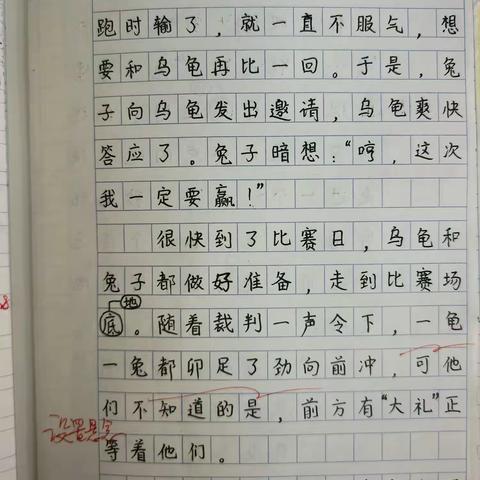 跑时输了，就一直不服气，想
要和乌龟再比一回。于是，兔
子向乌龟发出邀请，乌龟爽快
答应了。兔子暗想：“哼，这次
我一定要赢！”
很快到了比赛日，乌龟和
兔子都做好准备，走到比赛场
地
底。随着裁判一声令下，一龟
一兔都卯足了劲向前冲，可他
们不知道的是，前方有“大礼”正
设置悬念
等着他们。